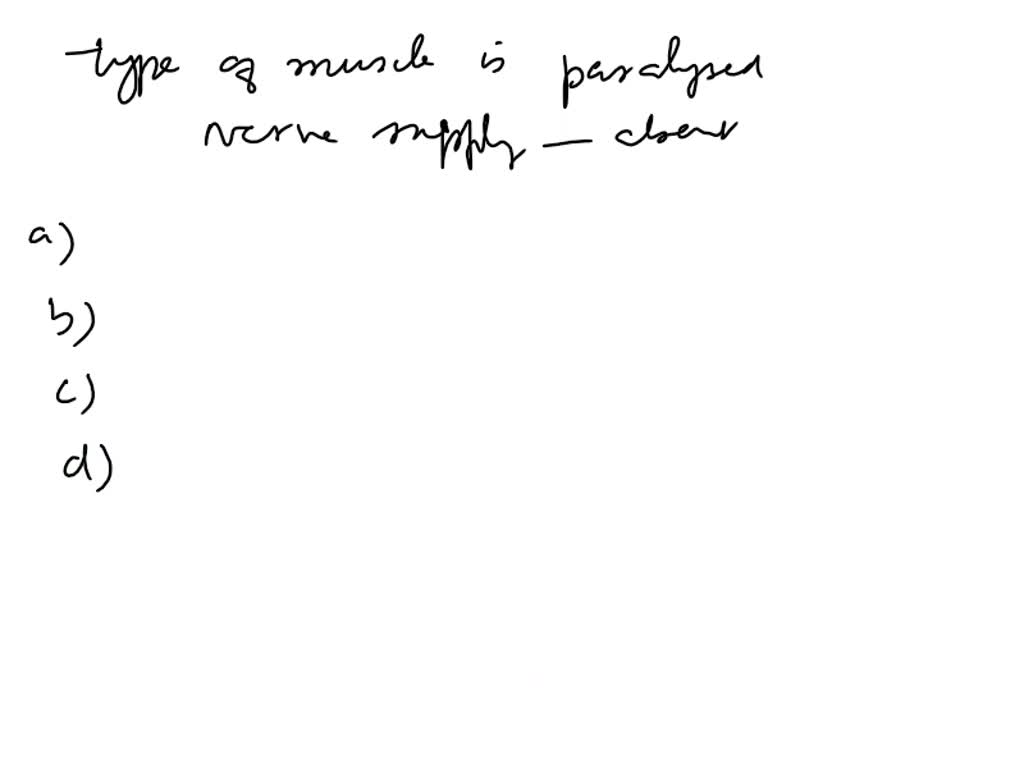 type of muscle is paralysed
nerve supply — absent
a)
b)
c)
d)